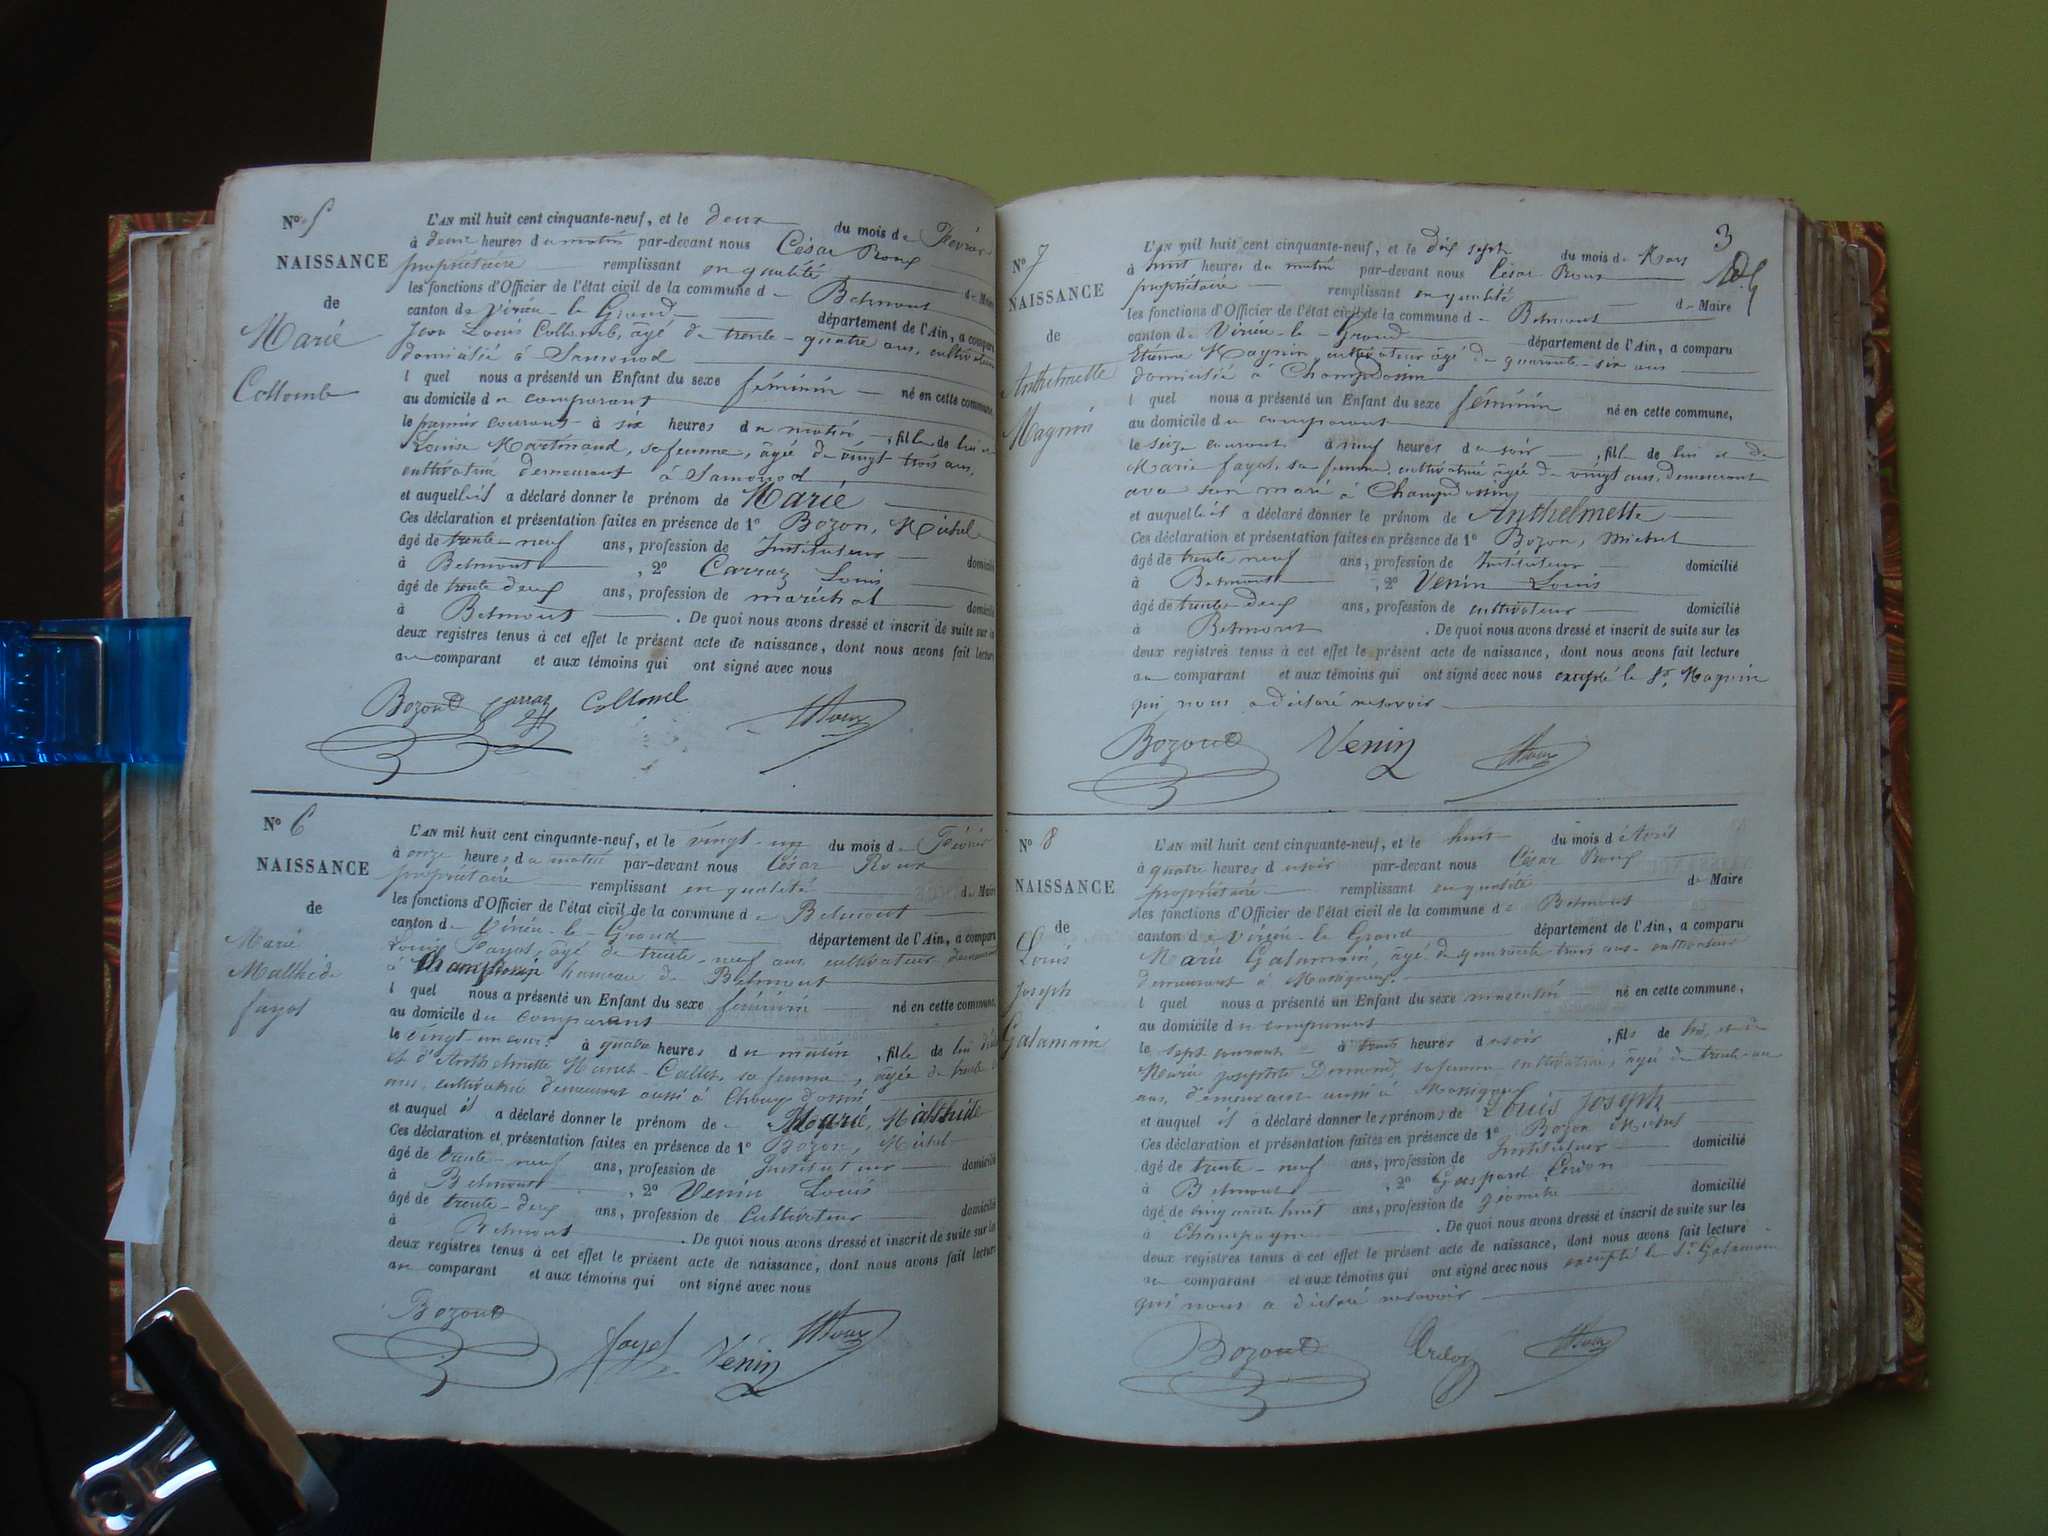 N° 5
NAISSANCE
de
Marie
Collomb
L'AN mil huit cent cinquante-neuf, et le deux du mois de Février
à heures du matin par-devant nous César Roux
propriétaire remplissant en qualité de Maire
les fonctions d'Officier de l'état civil de la commune de Belmont
canton de Virieu-le-Grand département de l'Ain, a comparu
Jean Louis Collomb, âgé de trente-quatre ans, cultivateur
domicilié à Samonod
lequel nous a présenté un Enfant du sexe féminin né en cette commune,
au domicile du comparant
le premier courant à six heures du matin, fille de lui et
Louise Martinand, sa femme, âgée de vingt-trois ans,
cultivatrice demeurant à Samonod
et auquel il a déclaré donner le prénom de Marie
Ces déclaration et présentation faites en présence de 1° Bozon, Michel
âgé de trente-neuf ans, profession de Instituteur domicilié
à Belmont, 2° Carraz Louis
âgé de trente deux ans, profession de maréchal domicilié
à Belmont. De quoi nous avons dressé et inscrit de suite sur les
deux registres tenus à cet effet le présent acte de naissance, dont nous avons fait lecture
au comparant et aux témoins qui ont signé avec nous
Bozon Carraz Collomb Roux
N° 6
NAISSANCE
de
Marie
Malthide
fayot
L'AN mil huit cent cinquante-neuf, et le vingt-un du mois de Février
à onze heures du matin par-devant nous César Roux
propriétaire remplissant en qualité de Maire
les fonctions d'Officier de l'état civil de la commune de Belmont
canton de Virieu-le-Grand département de l'Ain, a comparu
Louis Fayot, âgé de trente-neuf ans cultivateur demeurant
à Champdossin hameau de Belmont
lequel nous a présenté un Enfant du sexe féminin né en cette commune,
au domicile du comparant
le vingt-un cour. à quatre heures du matin, fille de lui
et d'Anthelmette sa femme, âgée de trente
ans, cultivatrice demeurant aussi à Champdossin
et auquel il a déclaré donner le prénom de Marie, Malthide
Ces déclaration et présentation faites en présence de 1° Bozon, Michel
âgé de trente-neuf ans, profession de Instituteur domicilié
à Belmont, 2° Venin Louis
âgé de trente-deux ans, profession de Cultivateur domicilié
à Belmont. De quoi nous avons dressé et inscrit de suite sur les
deux registres tenus à cet effet le présent acte de naissance, dont nous avons fait lecture
au comparant et aux témoins qui ont signé avec nous
Bozon fayot Venin Roux
3
N° 7
NAISSANCE
de
Anthelmette
Magnin
L'AN mil huit cent cinquante-neuf, et le dix sept du mois de Mars
à huit heures du matin par-devant nous César Roux
propriétaire remplissant en qualité de Maire
les fonctions d'Officier de l'état civil de la commune de Belmont
canton de Virieu-le-Grand département de l'Ain, a comparu
Etienne Magnin, cultivateur âgé de quarante-six ans
domicilié à Champdossin
lequel nous a présenté un Enfant du sexe féminin né en cette commune,
au domicile du comparant
le seize courant à neuf heures du soir, fille de lui et de
Marie fayot, sa femme, cultivatrice âgée de vingt ans, demeurant
avec son mari à Champdossin
et auquel il a déclaré donner le prénom de Anthelmette
Ces déclaration et présentation faites en présence de 1° Bozon, Michel
âgé de trente neuf ans, profession de Instituteur domicilié
à Belmont, 2° Venin Louis
âgé de trente-deux ans, profession de cultivateur domicilié
à Belmont. De quoi nous avons dressé et inscrit de suite sur les
deux registres tenus à cet effet le présent acte de naissance, dont nous avons fait lecture
au comparant et aux témoins qui ont signé avec nous excepté le Sr. Magnin
qui nous a déclaré ne savoir
Bozon Venin Roux
N° 8
NAISSANCE
de
Louis
Joseph
Galamain
L'AN mil huit cent cinquante-neuf, et le huit du mois d'Avril
à quatre heures du soir par-devant nous César Roux
propriétaire remplissant en qualité de Maire
les fonctions d'Officier de l'état civil de la commune de Belmont
canton de Virieu-le-Grand département de l'Ain, a comparu
Marie Galamain, âgé de quarante trois ans, cultivateur
demeurant à Massigneux
lequel nous a présenté un Enfant du sexe masculin né en cette commune,
au domicile du comparant
le sept courant à heures du soir, fils de lui, et de
Marie Josephte sa femme cultivatrice, âgée de trente
ans, demeurant aussi à Massigneux
et auquel il a déclaré donner les prénoms de Louis Joseph
Ces déclaration et présentation faites en présence de 1° Bozon Michel
âgé de trente-neuf ans, profession de Instituteur domicilié
à Belmont, 2° Gaspard
âgé de cinquante huit ans, profession de géomètre domicilié
à Champagne. De quoi nous avons dressé et inscrit de suite sur les
deux registres tenus à cet effet le présent acte de naissance, dont nous avons fait lecture
au comparant et aux témoins qui ont signé avec nous excepté le Sr Galamain
qui nous a déclaré ne savoir
Bozon Roux